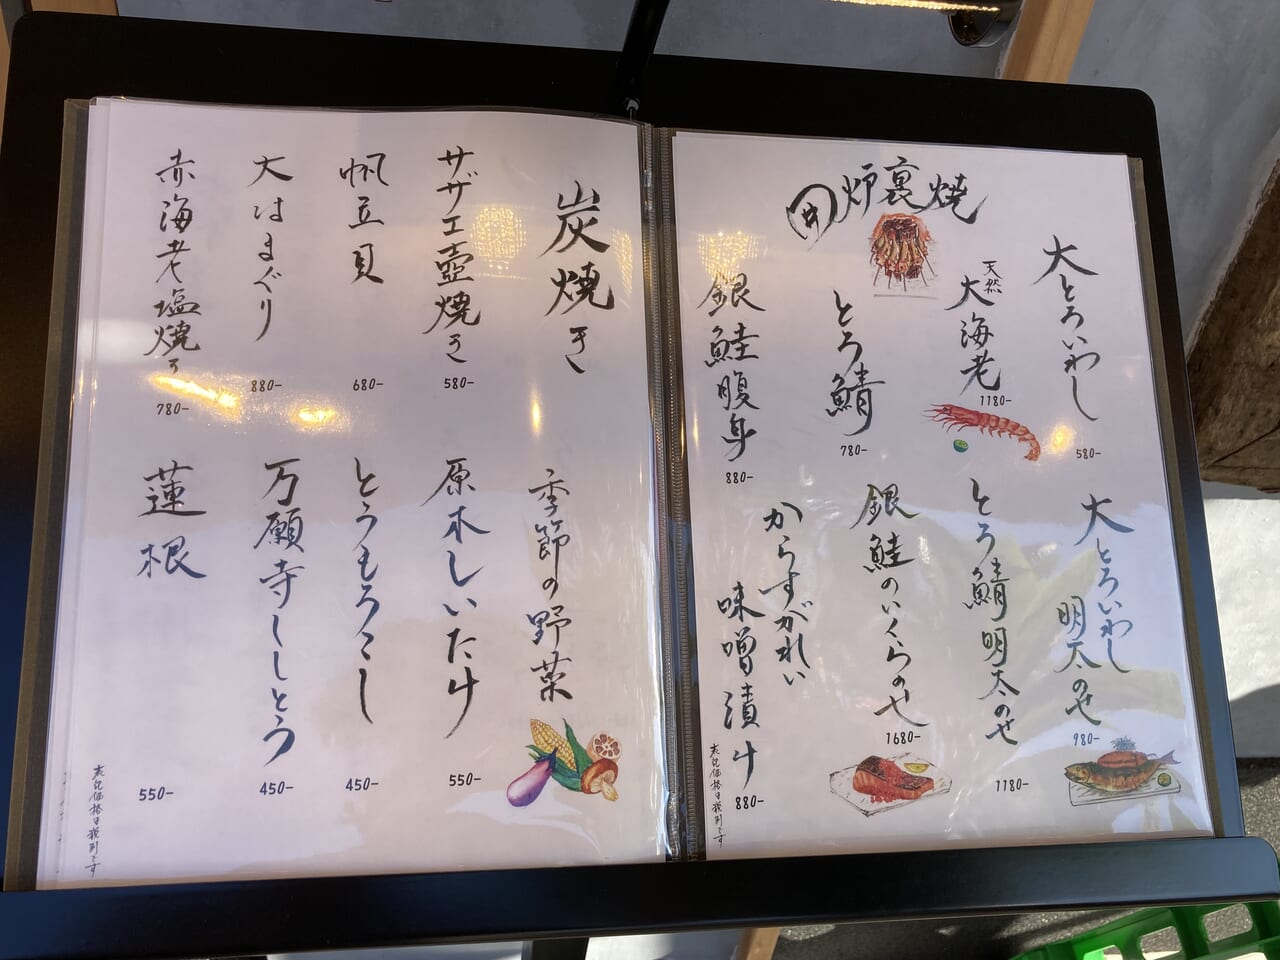 炉裏焼
大とろいわし
580-
天然
大海老
1180-
とろ鯖
780-
銀鮭腹身
880-
大とろいわし
明太のせ
980-
とろ鯖明太のせ
1180-
銀鮭のいくらのせ
1680-
からすがれい
味噌漬け
880-
表記価格は税別です
炭焼き
サザエ壺焼き
580-
帆立貝
680-
大はまぐり
880-
赤海老塩焼き
780-
季節の野菜
原木しいたけ
550-
とうもろこし
450-
万願寺ししとう
450-
蓮根
550-
表記価格は税別です